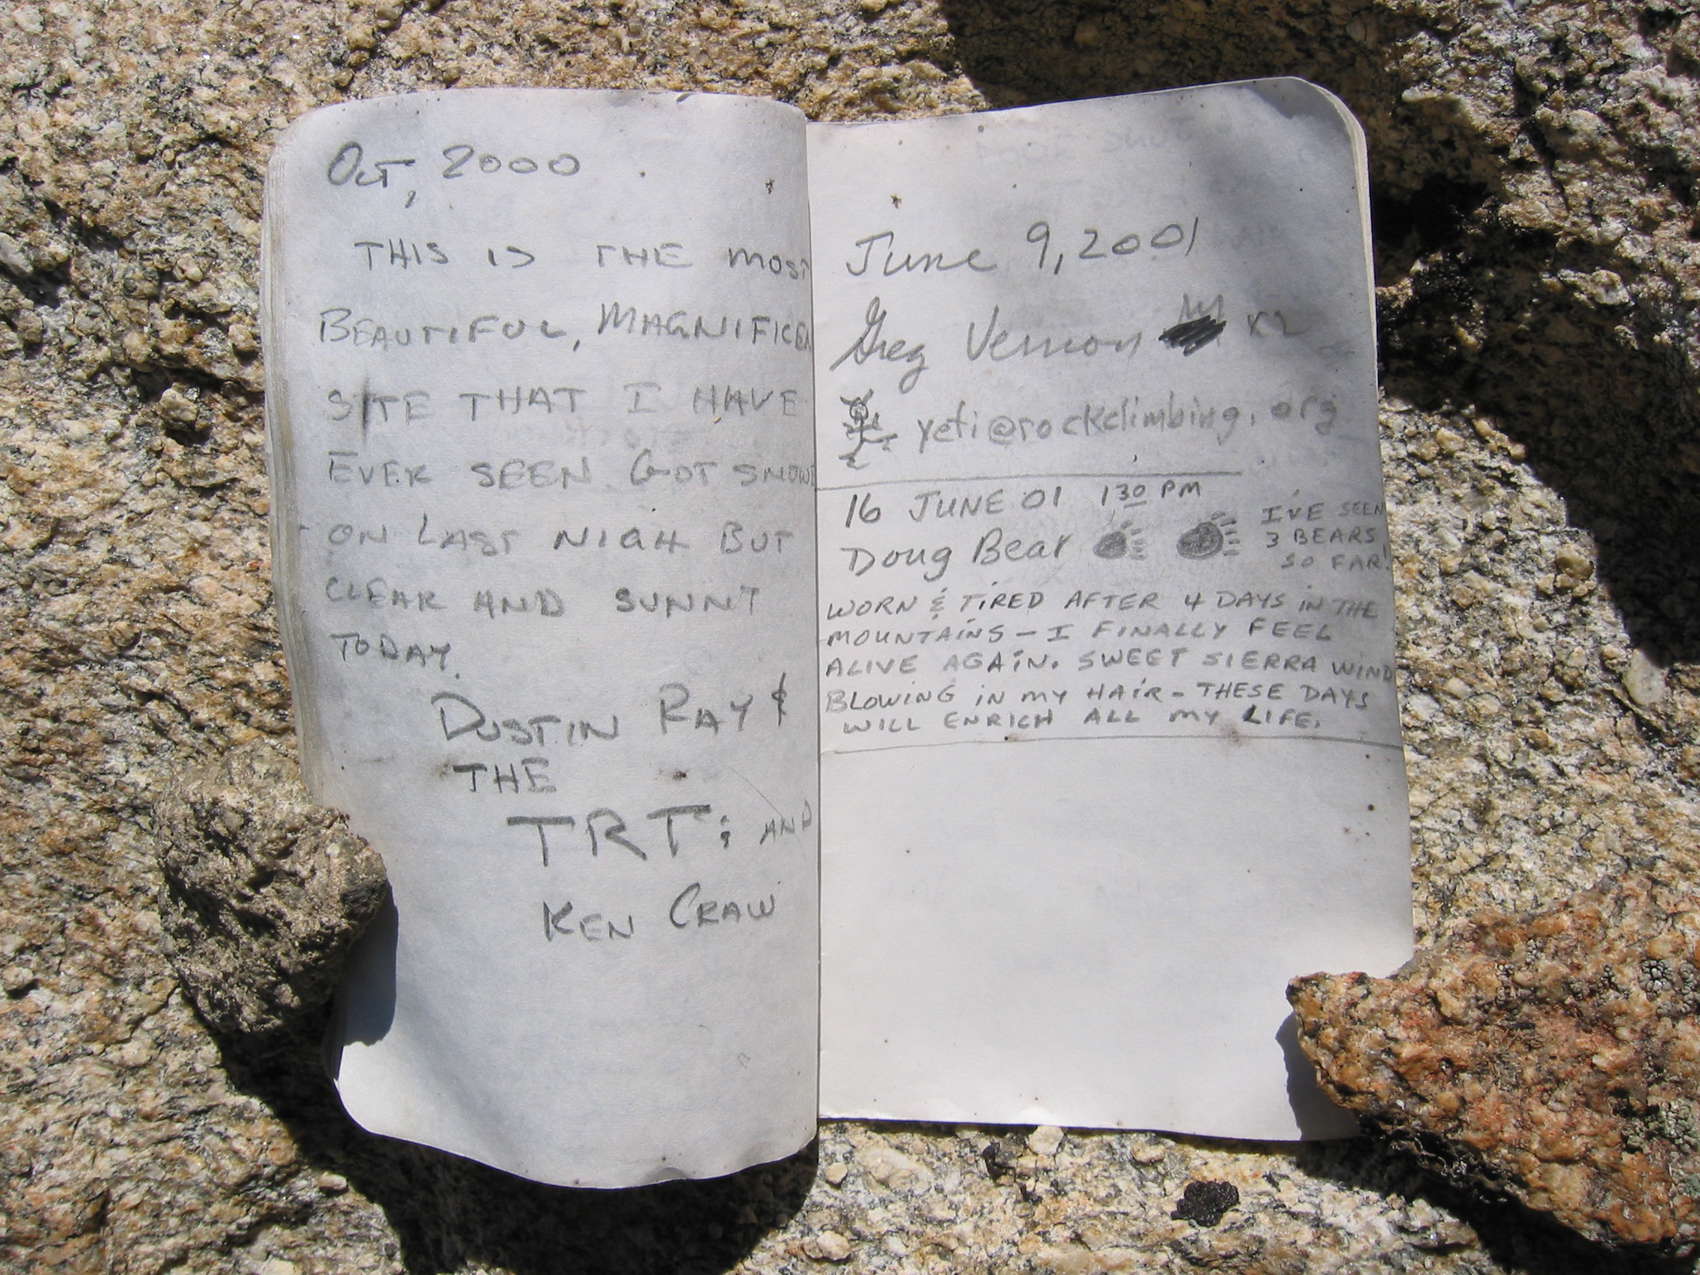 Oct, 2000
THIS IS THE MOST
BEAUTIFUL, MAGNIFICEN
SITE THAT I HAVE
EVER SEEN GOT SNOWE
ON LAST NIGH BUT
CLEAR AND SUNNY
TODAY.
DUSTIN RAY &
THE
TRT; AND
KEN CRAW
June 9, 2001
Greg Vernon x2
yeti@rockclimbing.org
16 JUNE 01 130 PM
Doug Bear
I'VE SEEN
3 BEARS
SO FAR!
WORN & TIRED AFTER 4 DAYS IN THE
MOUNTAINS - I FINALLY FEEL
ALIVE AGAIN. SWEET SIERRA WIND
BLOWING IN MY HAIR - THESE DAYS
WILL ENRICH ALL MY LIFE.